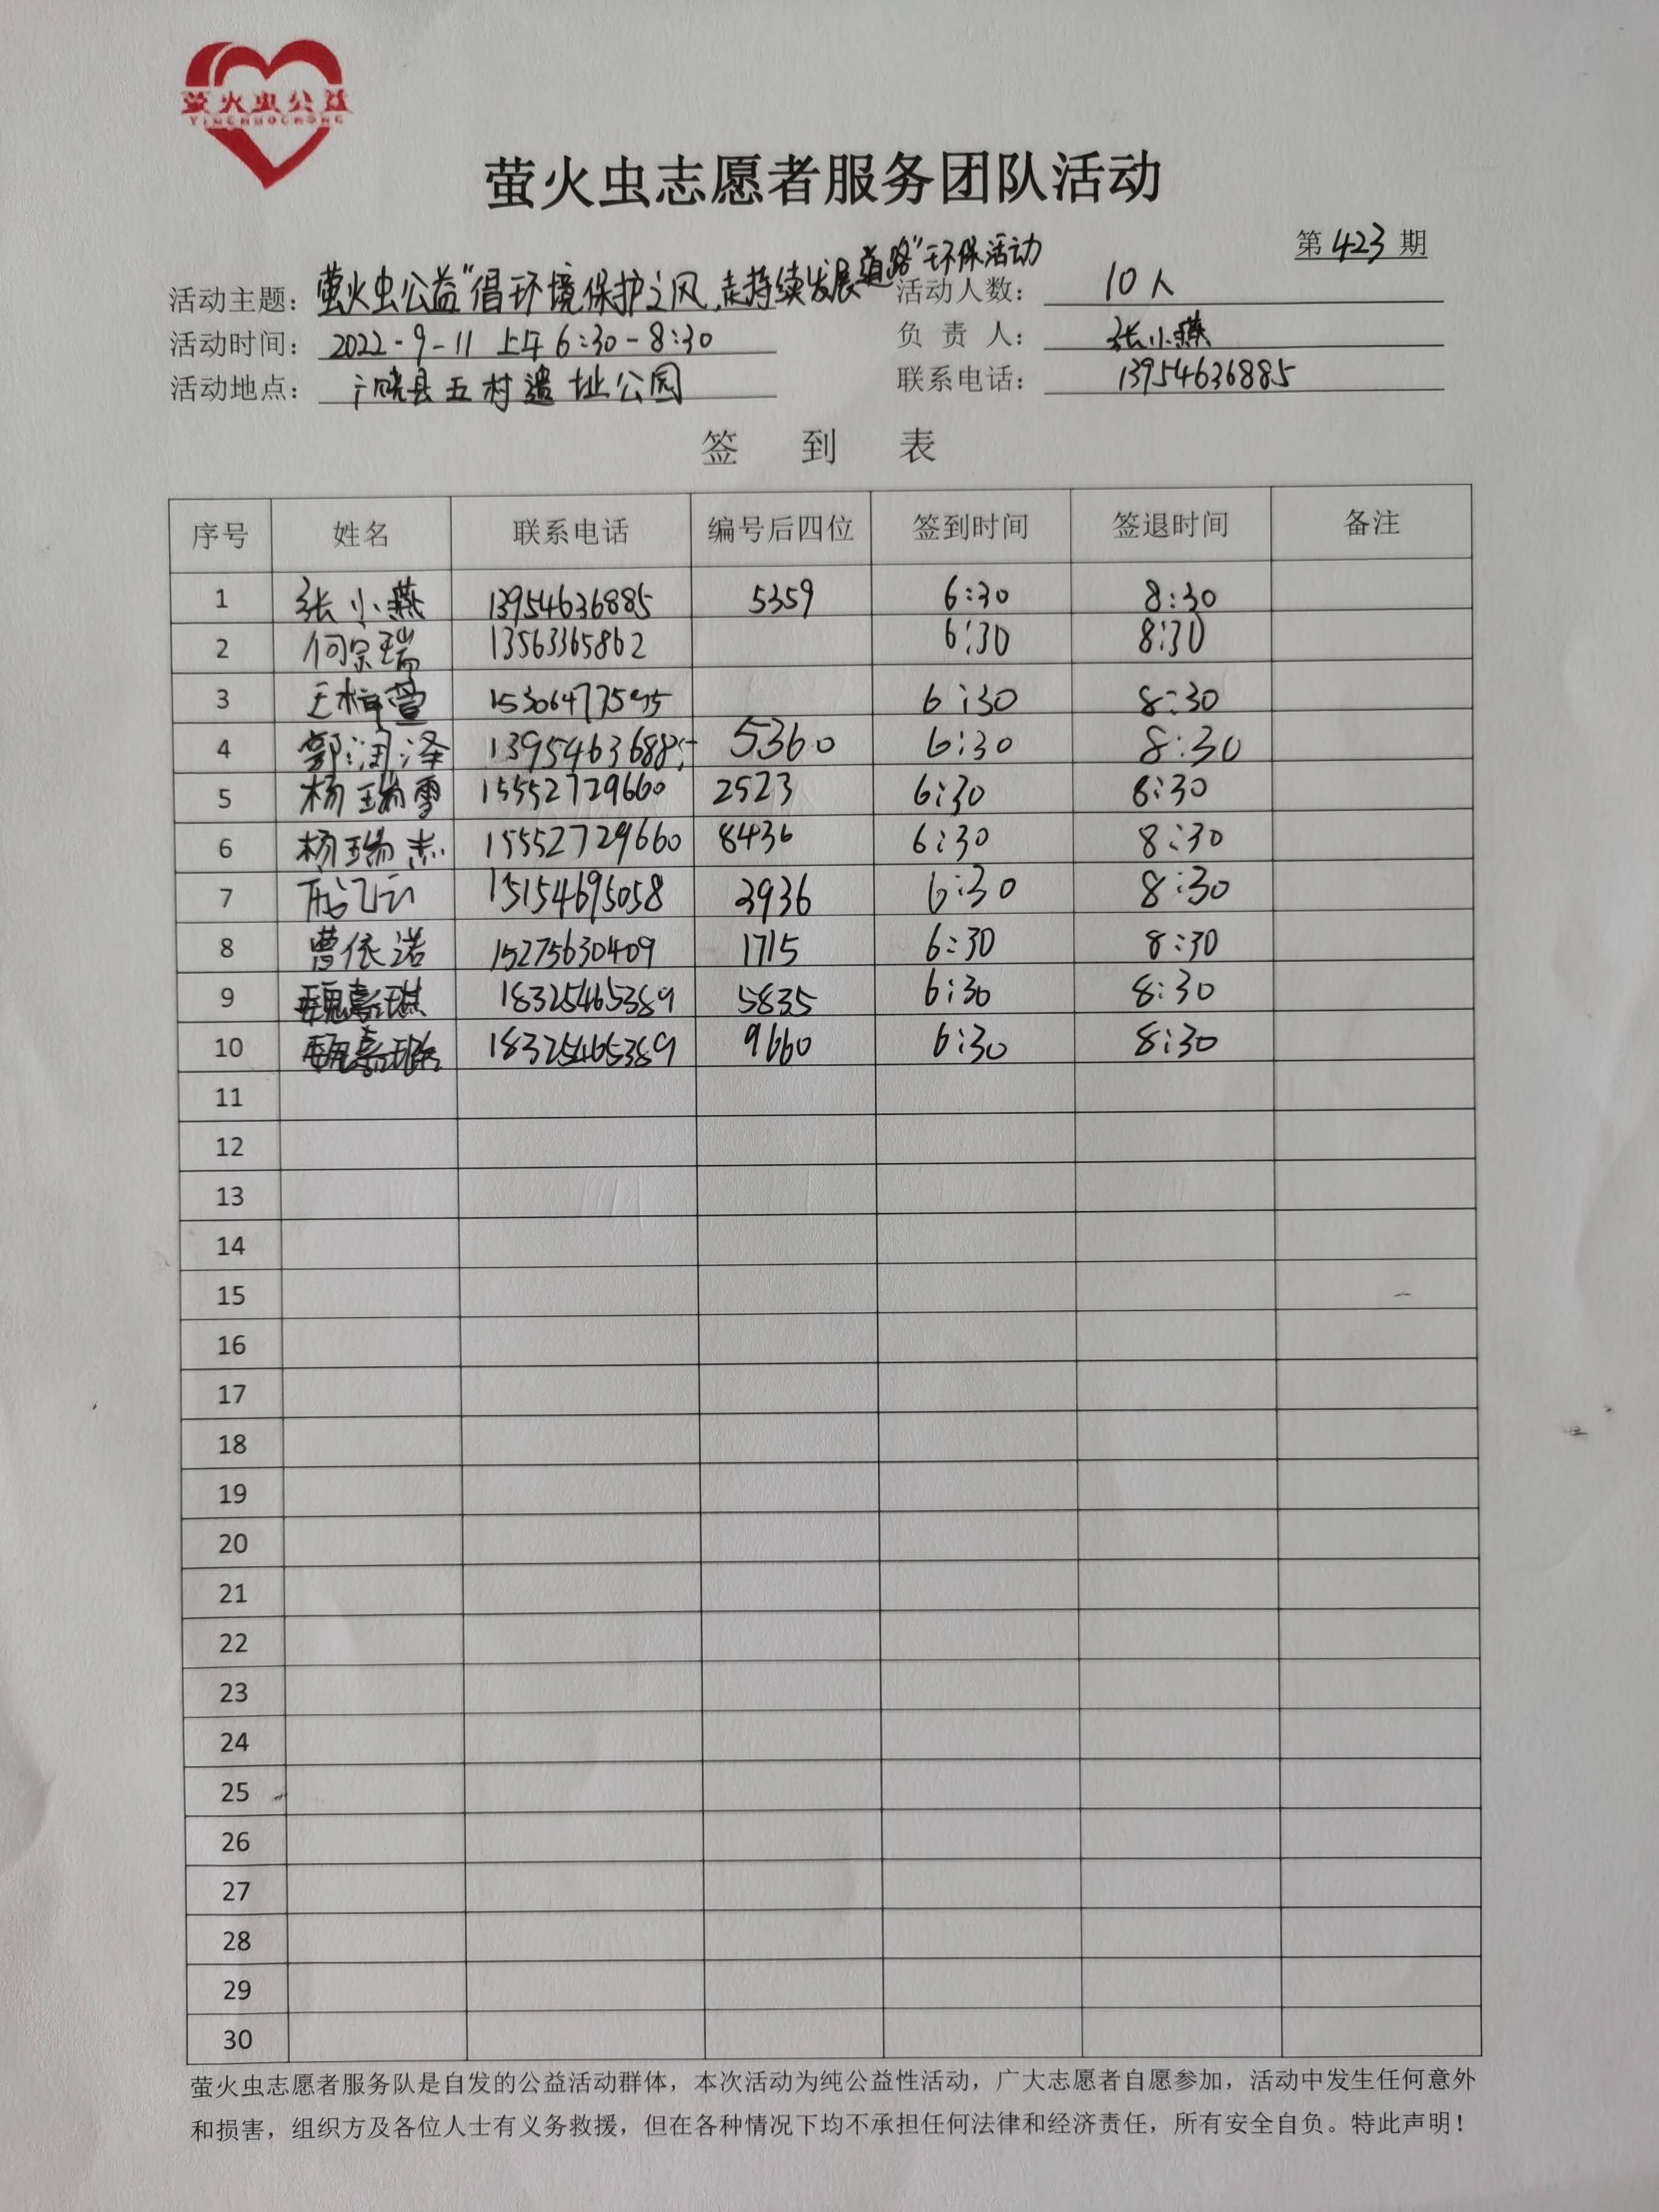 萤火虫公益
YINGHUOCHONG
萤火虫志愿者服务团队活动
第 423 期
活动主题: 萤火虫公益"倡环境保护之风,走持续发展道路"环保活动 活动人数: 10人
活动时间: 2022-9-11 上午 6:30-8:30 负 责 人: 张小燕
活动地点: 广饶县五村遗址公园 联系电话: 13954636885
签 到 表
序号 姓名 联系电话 编号后四位 签到时间 签退时间 备注
1 张小燕 13954636885 5359 6:30 8:30
2 何宗瑞 13563365862 6:30 8:30
3 15306477595 6:30 8:30
4 郭润泽 13954636885 5360 6:30 8:30
5 杨瑞雪 15552729660 2523 6:30 8:30
6 杨瑞志 15552729660 8436 6:30 8:30
7 15154695058 3936 6:30 8:30
8 曹依诺 15275630409 1715 6:30 8:30
9 18325465389 5835 6:30 8:30
10 18325465389 9660 6:30 8:30
11
12
13
14
15
16
17
18
19
20
21
22
23
24
25
26
27
28
29
30
萤火虫志愿者服务队是自发的公益活动群体，本次活动为纯公益性活动，广大志愿者自愿参加，活动中发生任何意外
和损害，组织方及各位人士有义务救援，但在各种情况下均不承担任何法律和经济责任，所有安全自负。特此声明！